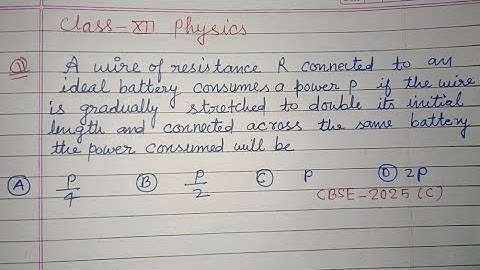 Class-XII Physics
Q A wire of resistance R connected to an
ideal battery consumes a power P if the wire
is gradually stretched to double its initial
length and connected across the same battery
the power consumed will be
(A) P/4 (B) P/2 (C) P (D) 2P
CBSE-2025 (C)